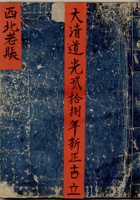 大清道光貳拾捌年新正吉立
西北老賬